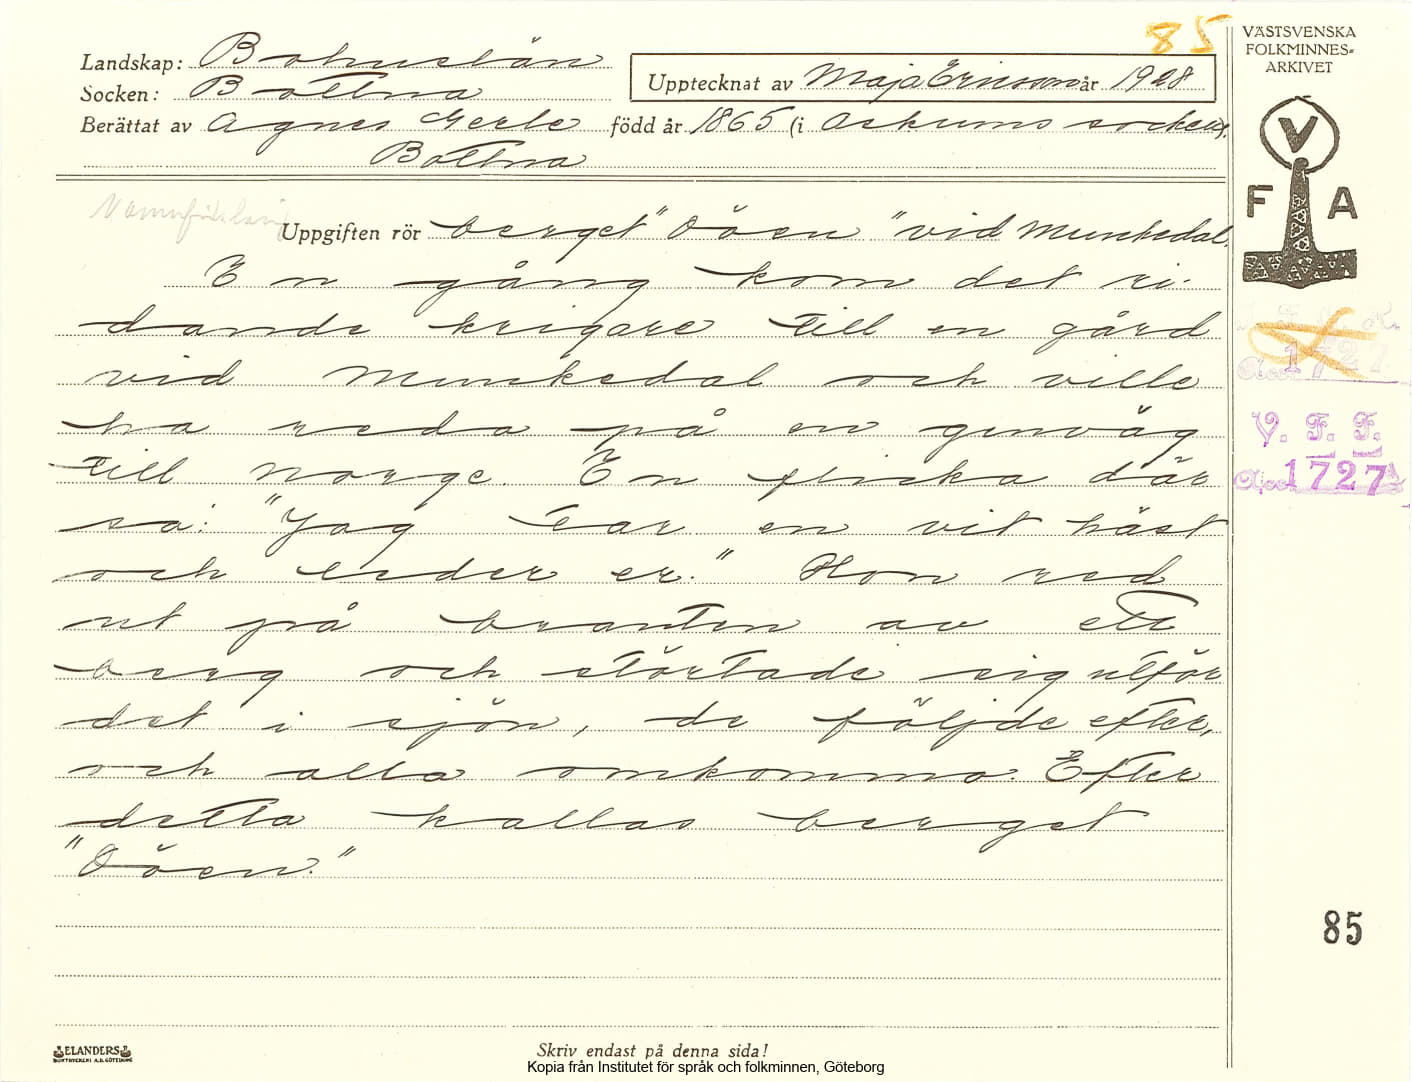 85
VÄSTSVENSKA
FOLKMINNES=
ARKIVET
Landskap: Bohuslän
Socken: Bottna
Upptecknat av Maja Ericson år 1928
Berättat av Agnes Gerle född år 1865 (i Askums socken).
Bottna
V
F A
Namnförklaring
Uppgiften rör berget "Döen" vid Munkedal.
En gång kom det ri-
dande krigare till en gård
vid Munkedal och ville
ha reda på en genväg
till Norge. En flicka där
sa: "Jag tar en vit häst
och leder er." Hon red
ut på branten av ett
berg och störtade sig utför
det i sjön, de följde efter,
och alla omkommo. Efter
detta kallas berget
"Döen."
1727
V. F. F.
Acc 1727
85
ELANDERS
BOKTRYCKERI A.B. GÖTEBORG
Skriv endast på denna sida!
Kopia från Institutet för språk och folkminnen, Göteborg